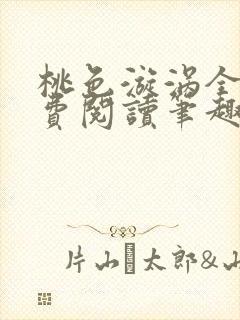 桃色漩涡全
費閱讀筆趣
片山 太郎&山